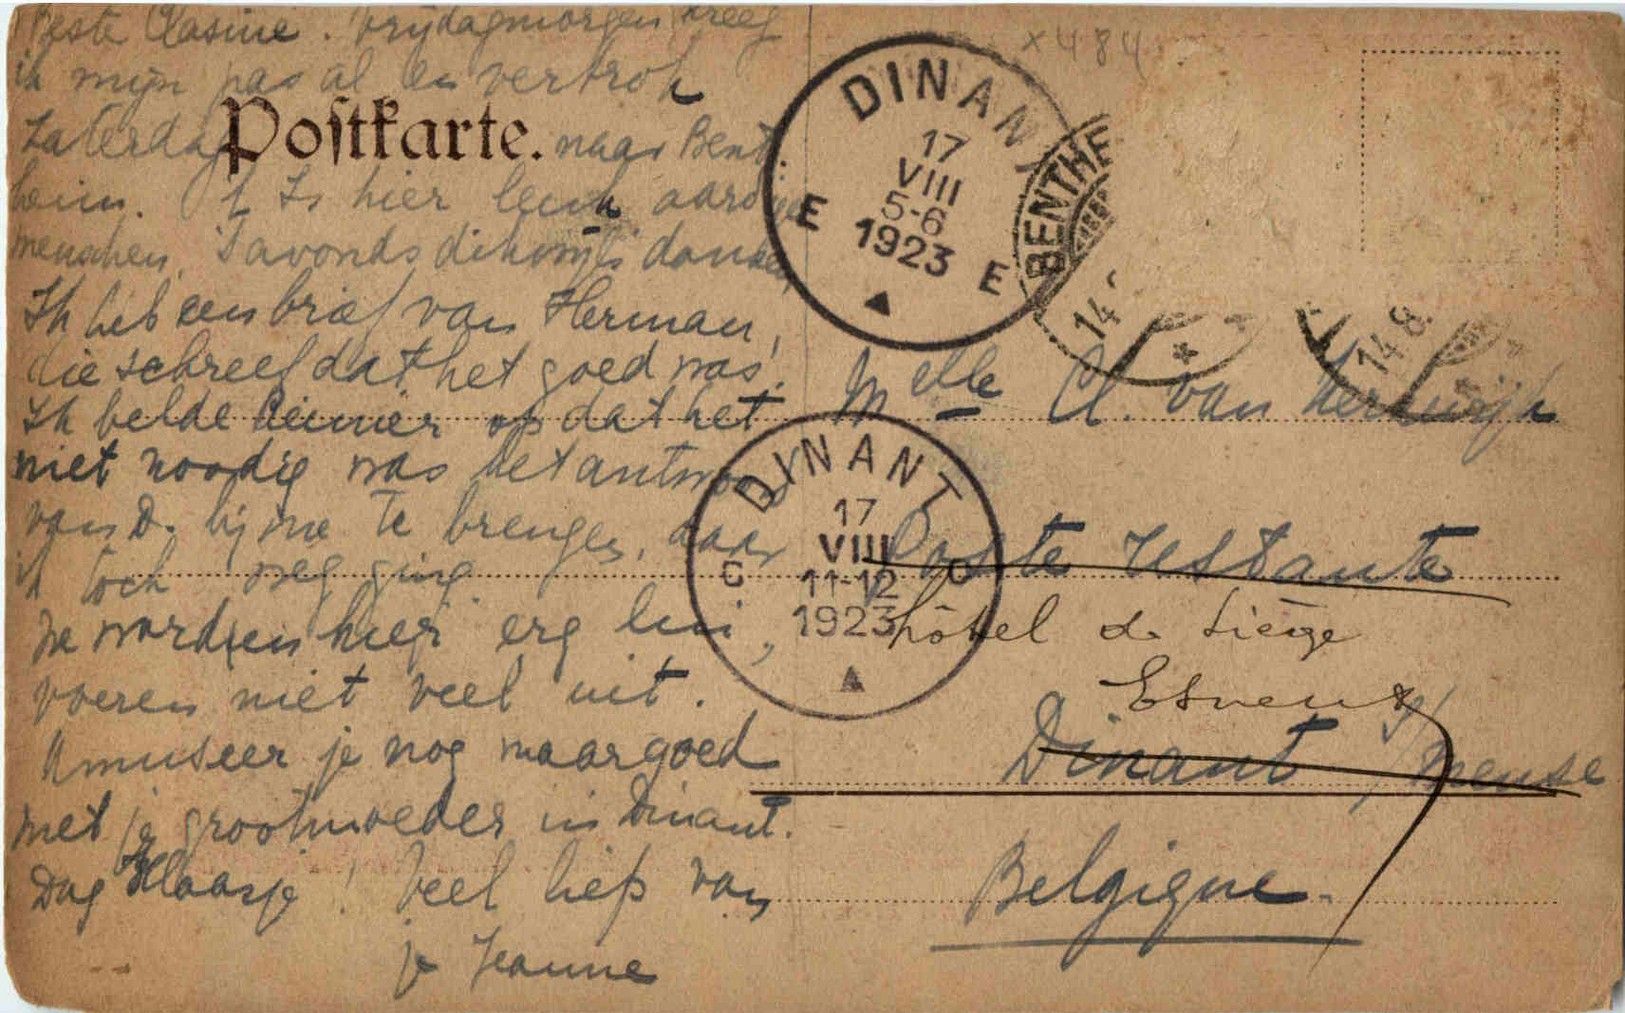 Beste Clasine. Vrijdagmorgen kreeg
ik mijn pas al en vertrok
Zaterdag naar Bent-
heim. 't Is hier leuk aardige
menschen, 's avonds dikwijls dansen
Ik heb een brief van Herman,
die schreef dat het goed was!
Ik belde Reinier op dat het
niet noodig was het antwoord
van D. bij me te brengen, daar
ik toch weg ging.
We worden hier erg lui,
voeren niet veel uit.
Amuseer je nog maar goed
met je grootmoeder in Dinant.
Dag Klaasje! Veel liefs van
je Jeanne
Postkarte.
x484
DINANT
17
VIII
5-6
1923
E E
BENTHE
14.
14 8.
Melle Cl. van
DINANT
17
VIII
11-12
1923
C C
Poste restante
hôtel de Liège
Esneux
Dinant s/meuse
Belgique